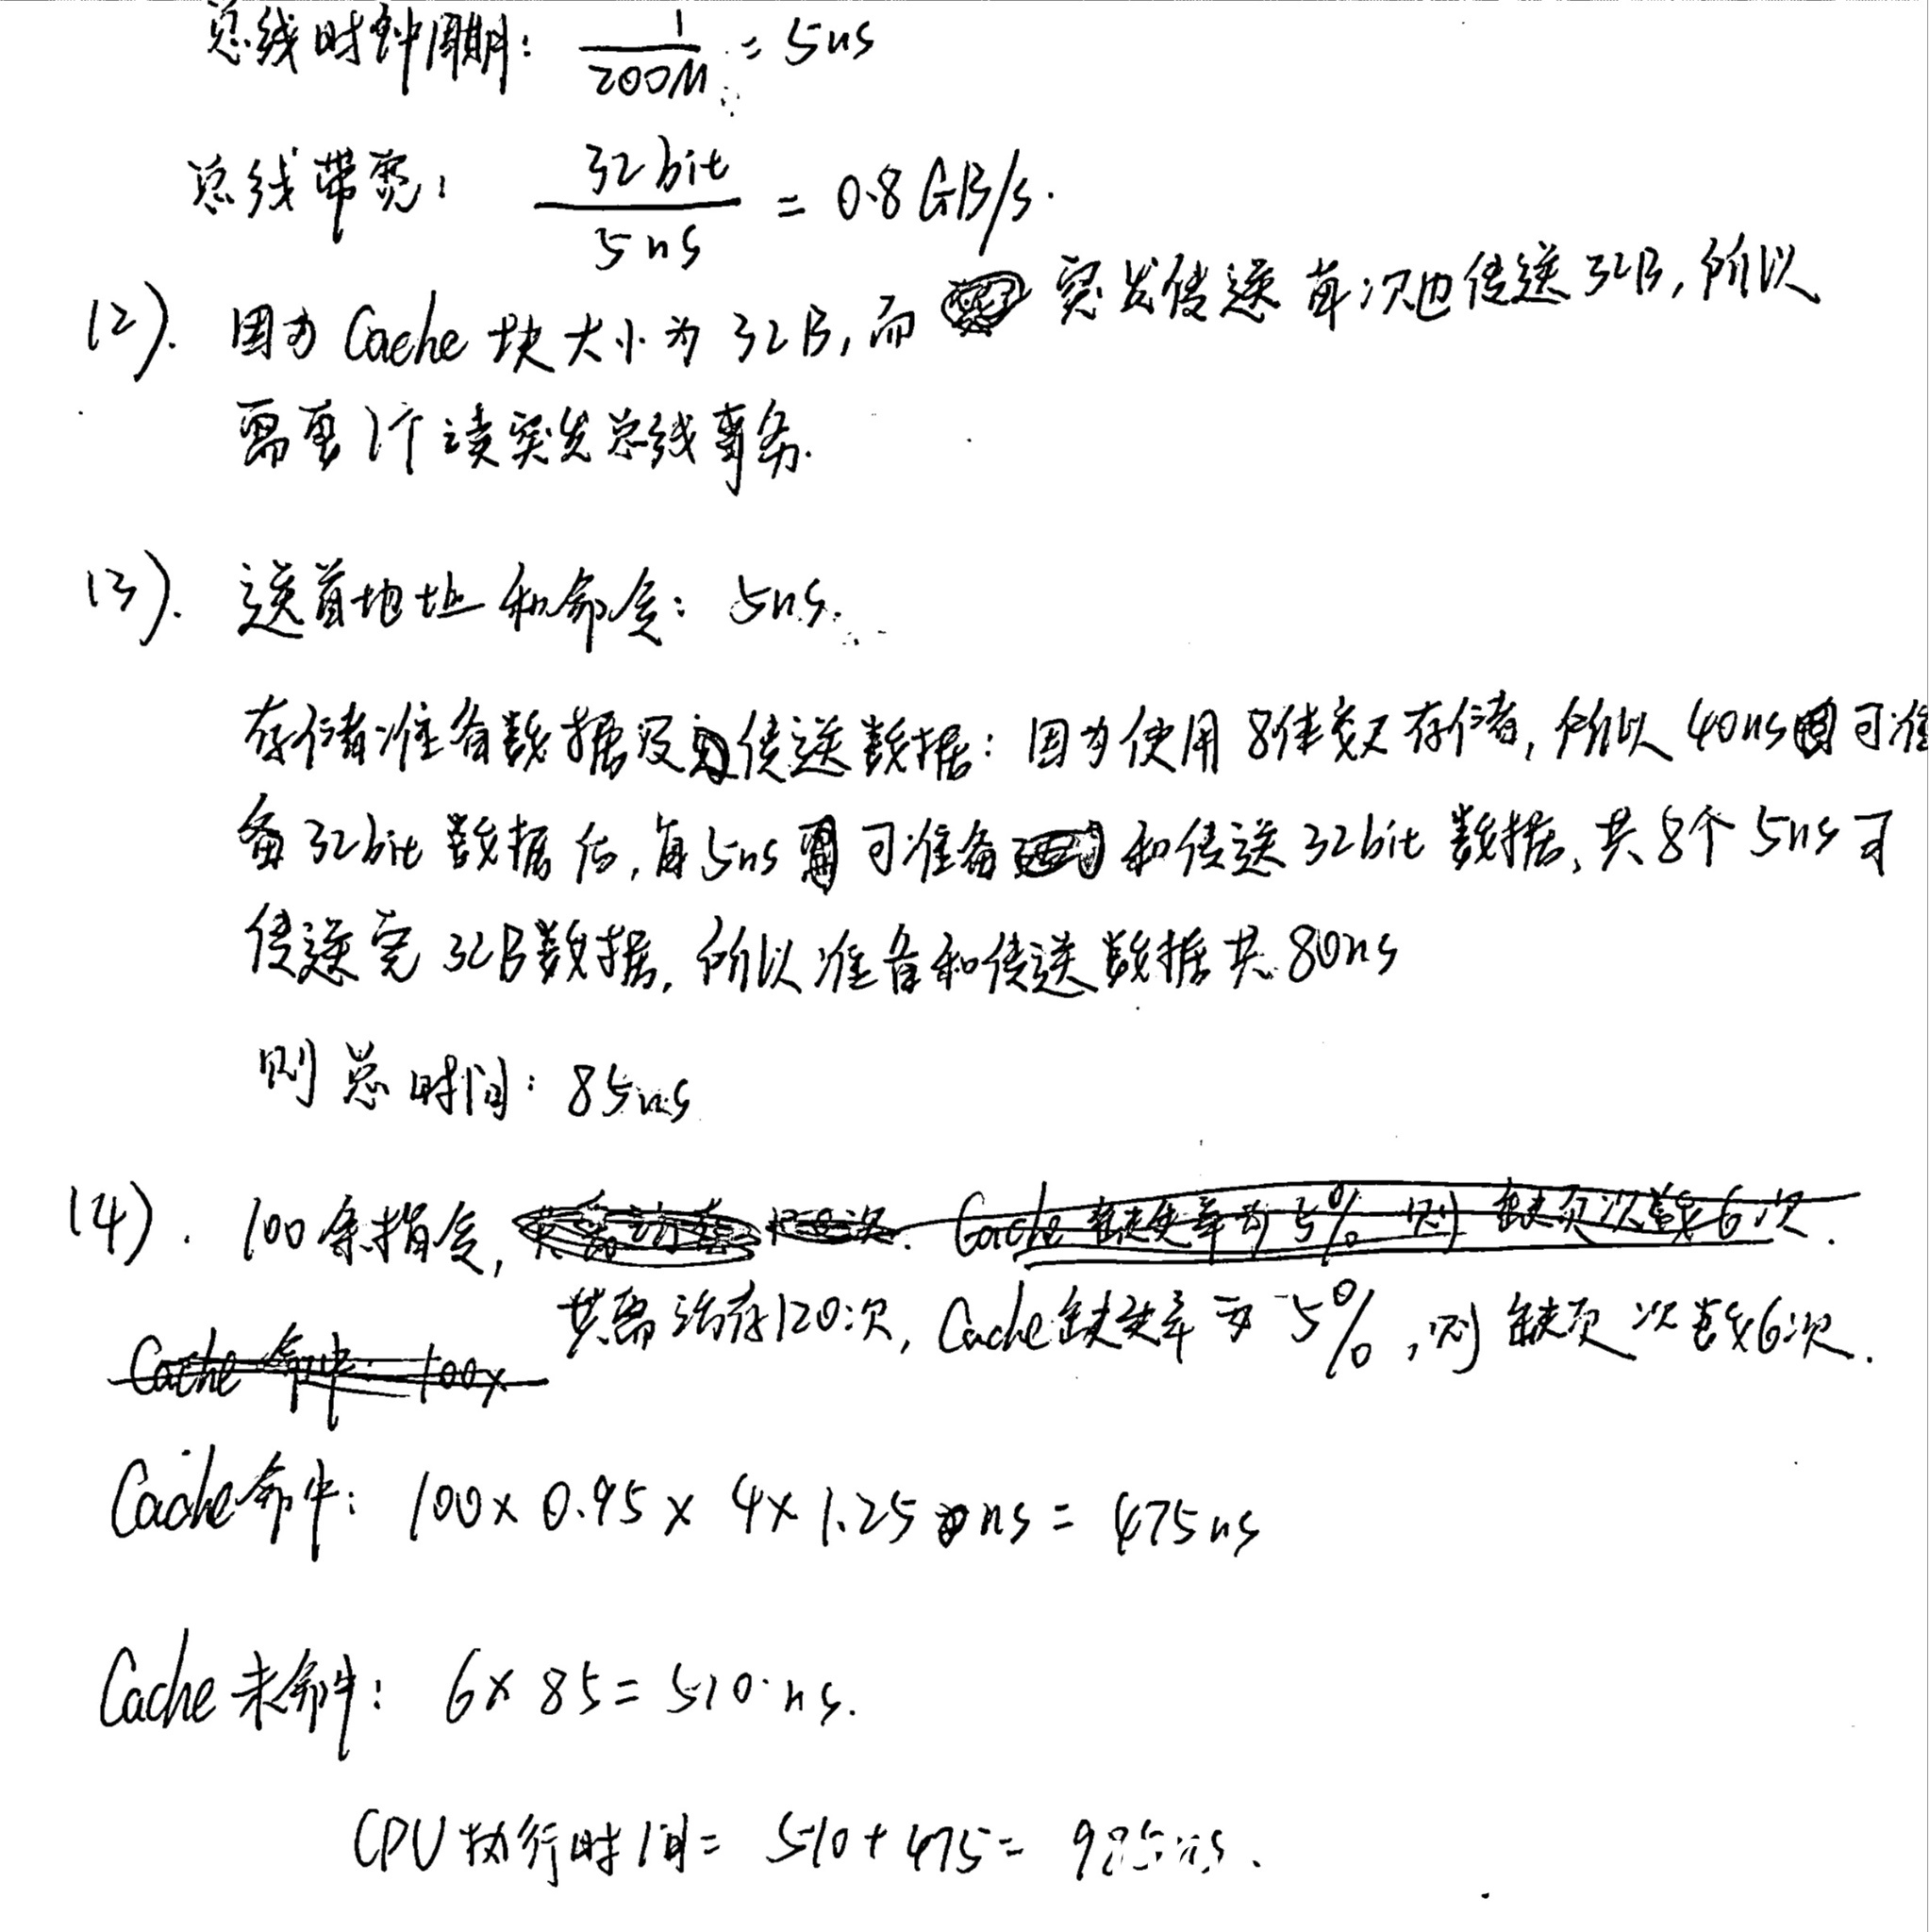 总线时钟周期: 1/200M = 5ns
总线带宽: 32bit/5ns = 0.8GB/s.
(2). 因为Cache块大小为32B,而突发传送每次也传送32B,所以
需要1个读突发总线事务.
(3). 送首地址和命令: 5ns.
存储准备数据及传送数据: 因为使用8体交叉存储, 所以40ns可准
备32bit数据后, 每5ns可准备和传送32bit数据, 共8个5ns可
传送完32B数据, 所以准备和传送数据共80ns
则总时间: 85ns
(4). 100条指令, Cache缺失率为5% 则缺页次数6次.
共需访存120次, Cache缺失率为5%, 则缺页次数6次.
Cache命中 100x
Cache命中: 100x0.95x4x1.25ns = 475ns
Cache未命中: 6x85=510ns.
CPU执行时间= 510+475= 985ns.